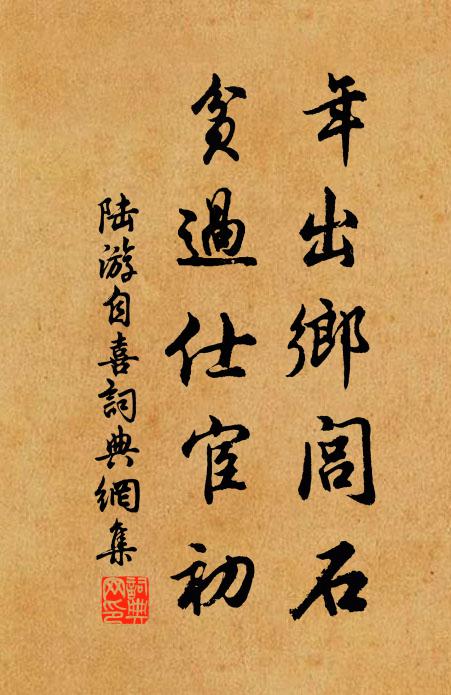 年出鄉閭石
貧過仕宦初
陆游自喜詞典網集
詞典
网印